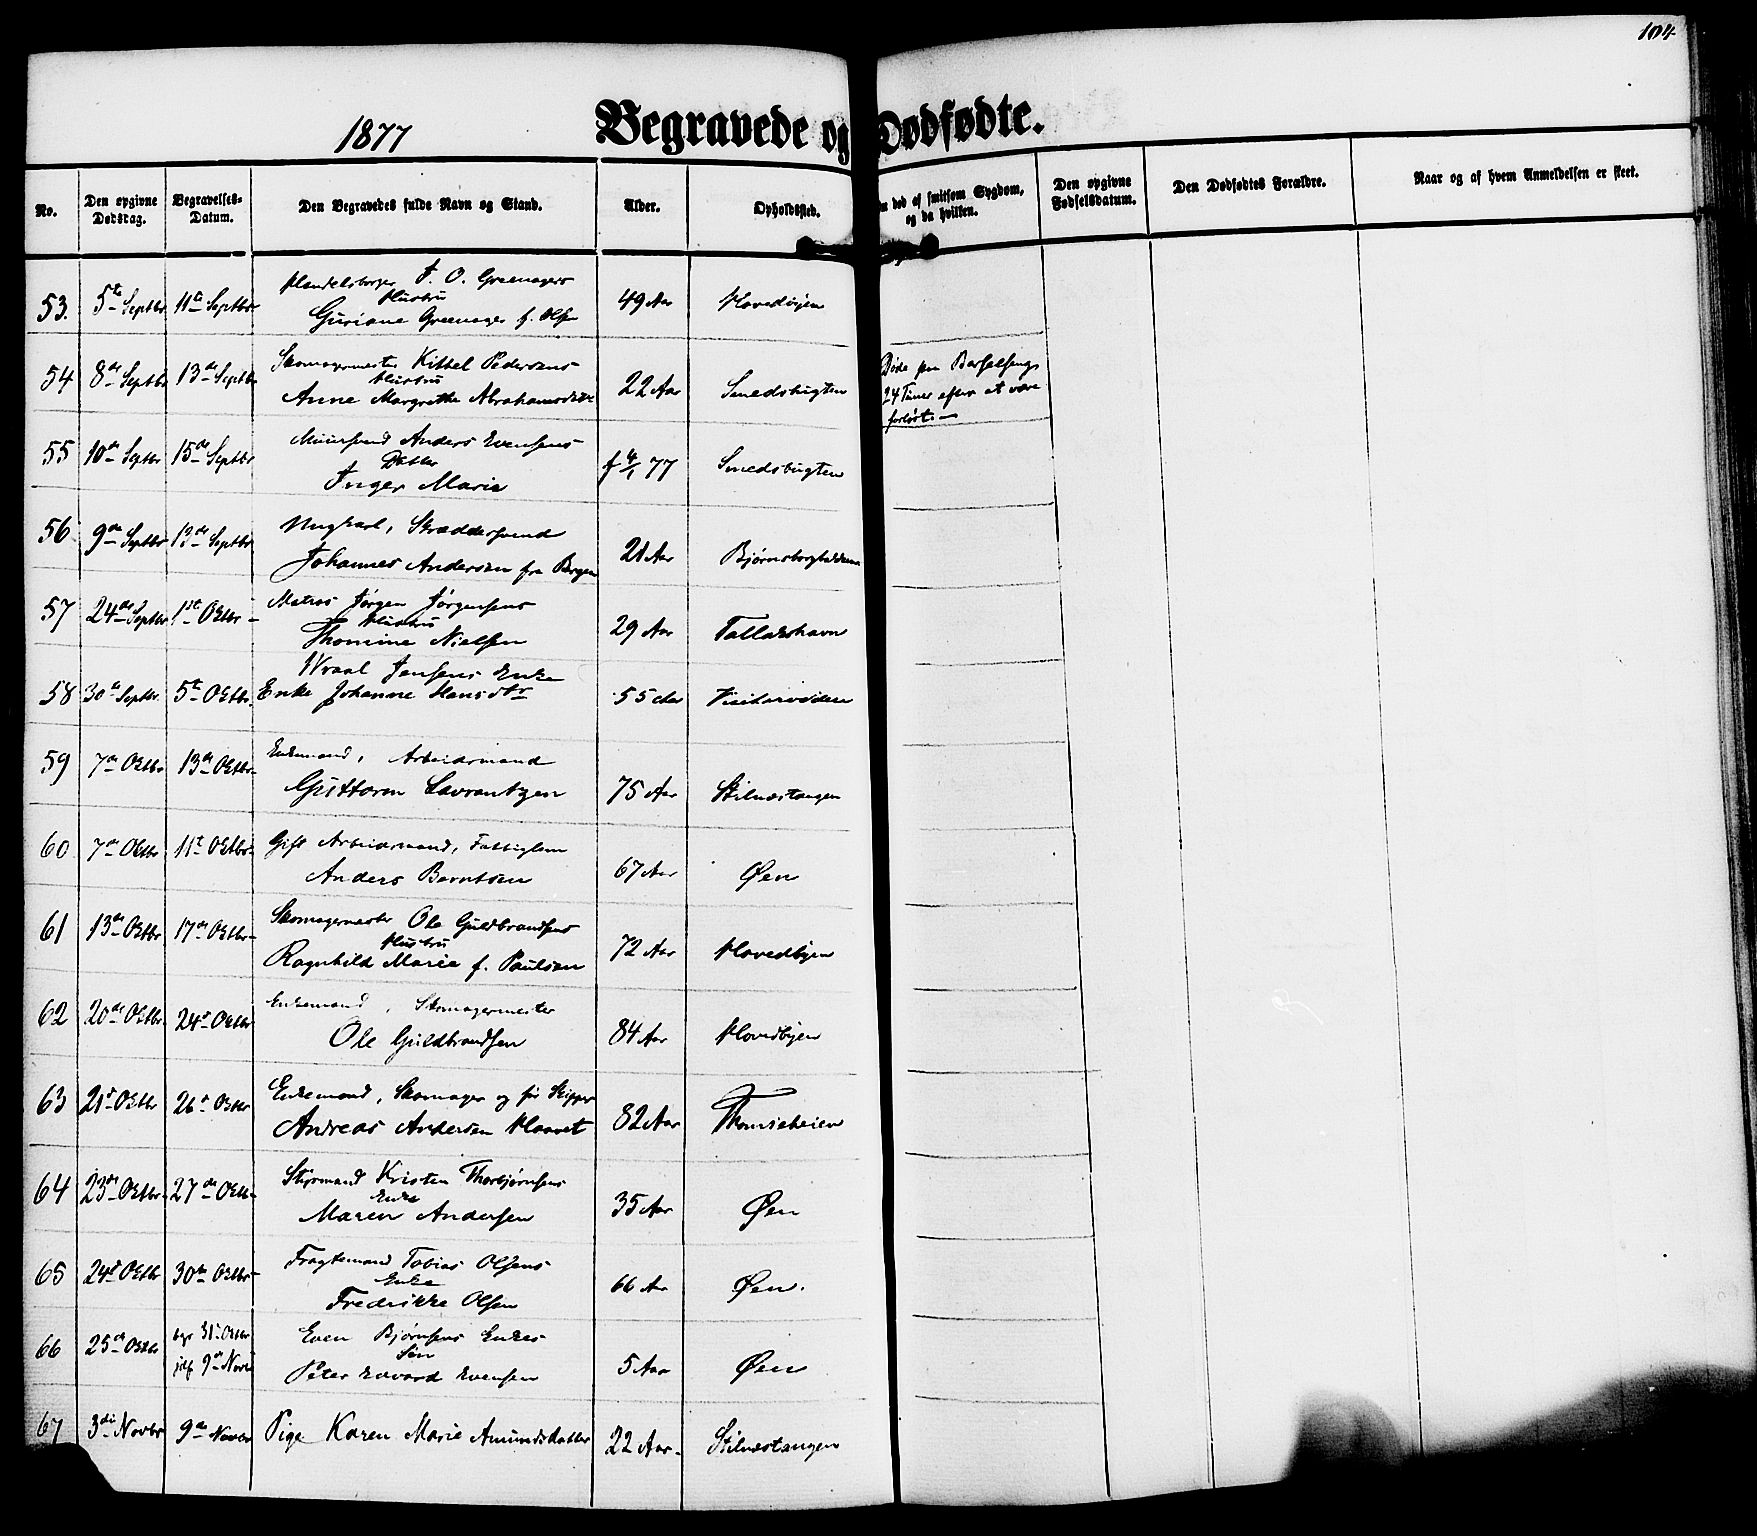 104
1877 Begravede og Dødfødte.
No. Den opgivne Dødsdag. Begravelses-Datum. Den Begravedes fulde Navn og Stand. Alder. Opholdssted. død af smitsom Sygdom, og da hvilken. Den opgivne Fødselsdatum. Den Dødfødtes Forældre. Naar og af hvem Anmeldelsen er skeet.
Handelsborger J. O. Greenagers
Hustru
53. 5te Septbr 11te Septbr Guriane Greenager f. Olsen 49 Aar Hovedbyen
Skomagermester Kittel Pedersens
Hustru
54 8de Septbr 13de Septbr Anne Margrethe Abrahamsdttr 22 Aar Smedsbugten Døde paa Barselseng
24 Timer efter at være
forløst. —
Muursvend Anders Evensens
Datter
55 10de Septbr 15de Septbr Inger Marie f 4/1 77 Smedsbugten
Ungkarl, Skræddersvend
56 9de Septbr 13de Septbr Johannes Andersen fra Bergen 21 Aar
Matros Jørgen Jørgensens
Hustru
57 24de Septbr 1ste Octbr Thomine Nielsen 29 Aar Tallakshavn
Wraal Jensens Enke
58 30te Septbr. 5te Octbr. Enke Johanne Hansdtr 55 Aar
Enkemand, Arbeidsmand
59 7de Octbr 13de Octbr Guttorm Lavrantzen 75 Aar Stilnæstangen
Gift Arbeidsmand, Fattiglem
60 7de Octbr 11te Octbr Anders Berntsen 67 Aar Øen
Skomagermester Ole Guldbrandsens
Hustru
61 13de Octbr 17de Octbr Ragnhild Marie f. Paulsen 72 Aar Hovedbyen
Enkemand, Skomagermester
62 20de Octbr. 24de Octbr Ole Guldbrandsen 84 Aar Hovedbyen
Enkemand, Skomager og før Skipper
63 21de Octbr 26de Octbr Andreas Andersen Haavet 82 Aar
Styrmand Kristen Thorbjørnsens
Enke
64 23de Octbr. 27de Octbr Maren Andersen 35 Aar Øen
Fragtemand Tobias Olsens
Enke
65 24de Octbr 30te Octbr Fredrikke Olsen 66 Aar Øen.
Even Bjørnsens Enkes
Søn
66 25de Octbr bgr 31te Octbr
jdf 9de Novbr Peter Edvard Evensen 5 Aar Øen
67 3die Novbr 9de Novbr Pige Karen Marie Amundsdatter 22 Aar. Stilnæstangen